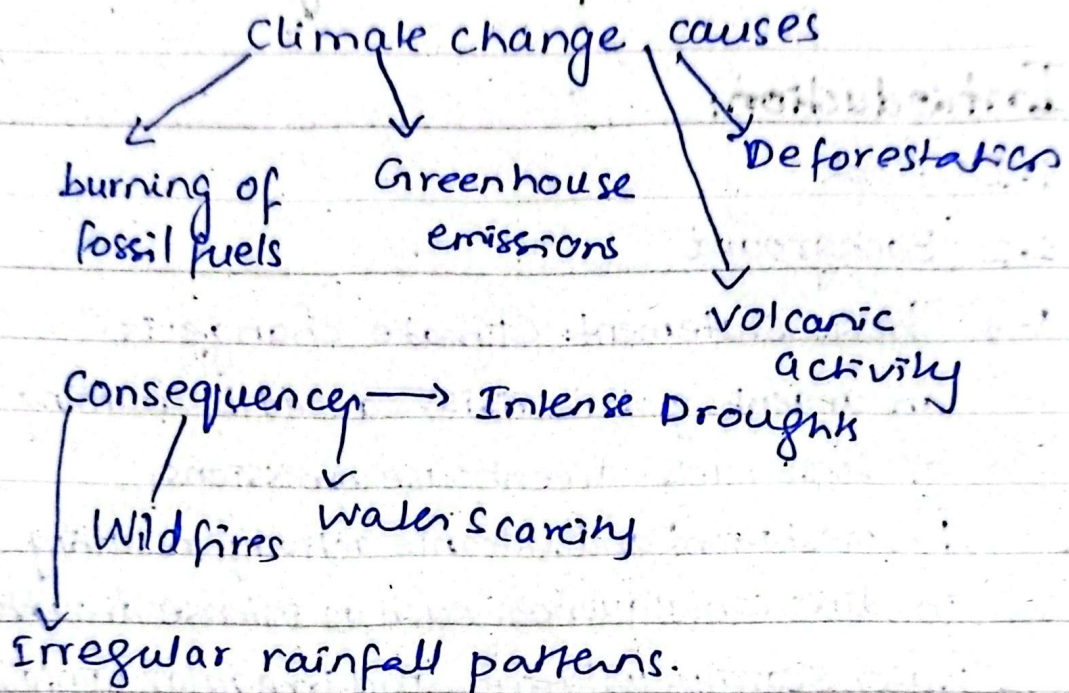 Climate change causes
burning of
fossil fuels
Greenhouse
emissions
Deforestation
Volcanic
activity
Consequences
Intense Droughts
Wildfires
Water scarcity
Irregular rainfall patterns.